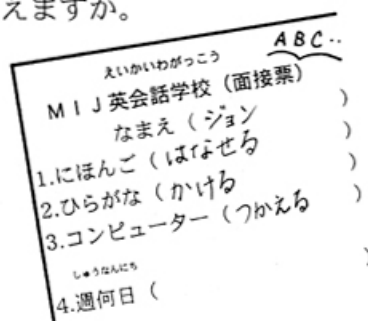 えますか。
ABC..
えいかいわがっこう
MIJ英会話学校（面接票）
なまえ（ジョン ）
1.にほんご（はなせる ）
2.ひらがな（かける ）
3.コンピューター（つかえる ）
しゅうなんにち
4.週何日（ ）